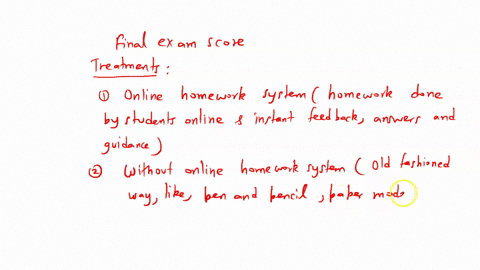 final exam score
Treatments :
① Online homework system ( homework done
by students online & instant feedback, answers and
guidance )
② Without online homework system ( Old fashioned
way, like, pen and pencil , paper mode